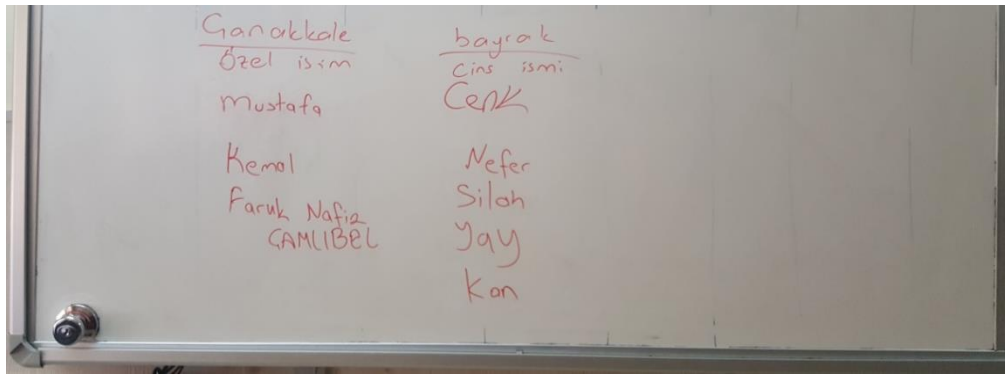 Çanakkale
Özel isim
Mustafa
Kemal
Faruk Nafiz
ÇAMLIBEL
bayrak
Cins ismi
Cenk
Nefer
Silah
Yay
Kan